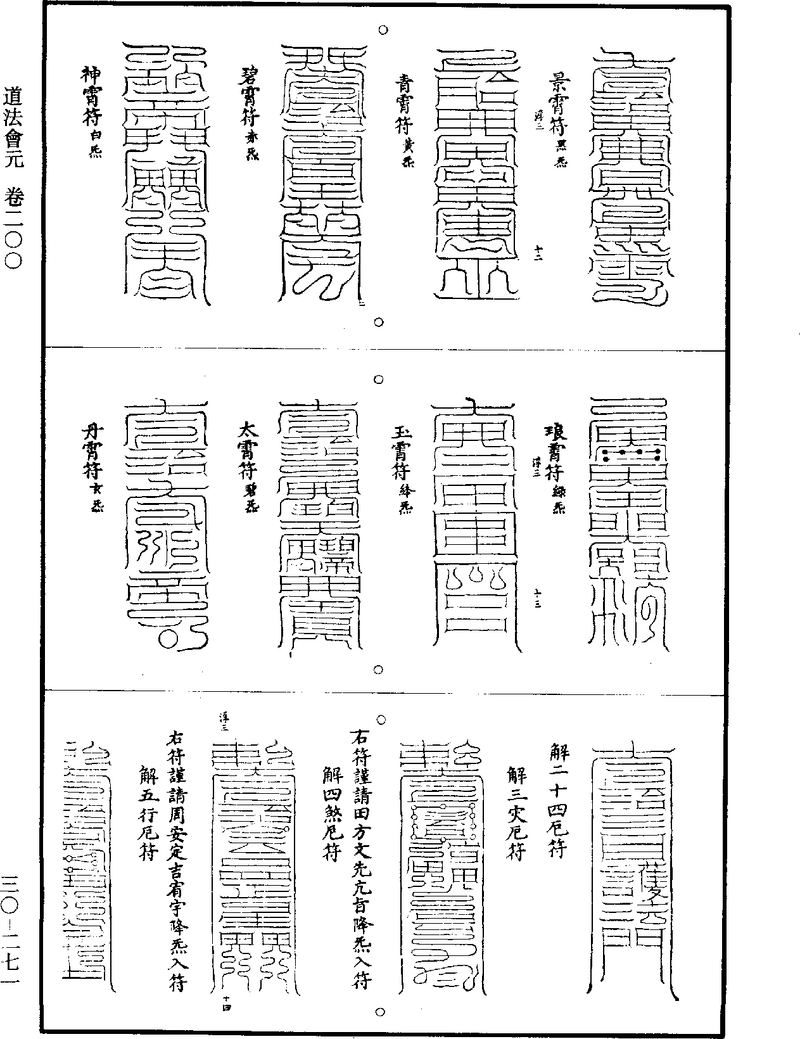 道法會元　卷二〇〇
三〇－二七一
景霄符 黑炁
浮三
十二
青霄符 黄炁
碧霄符 赤炁
神霄符 白炁
琅霄符 綠炁
浮三
十三
玉霄符 絳炁
太霄符 碧炁
丹霄符 玄炁
解二十四厄符
解三灾厄符
右符謹請田方文先亢旨降炁入符
解四煞厄符
浮三
十四
右符謹請周安定吉宥宇降炁入符
解五行厄符